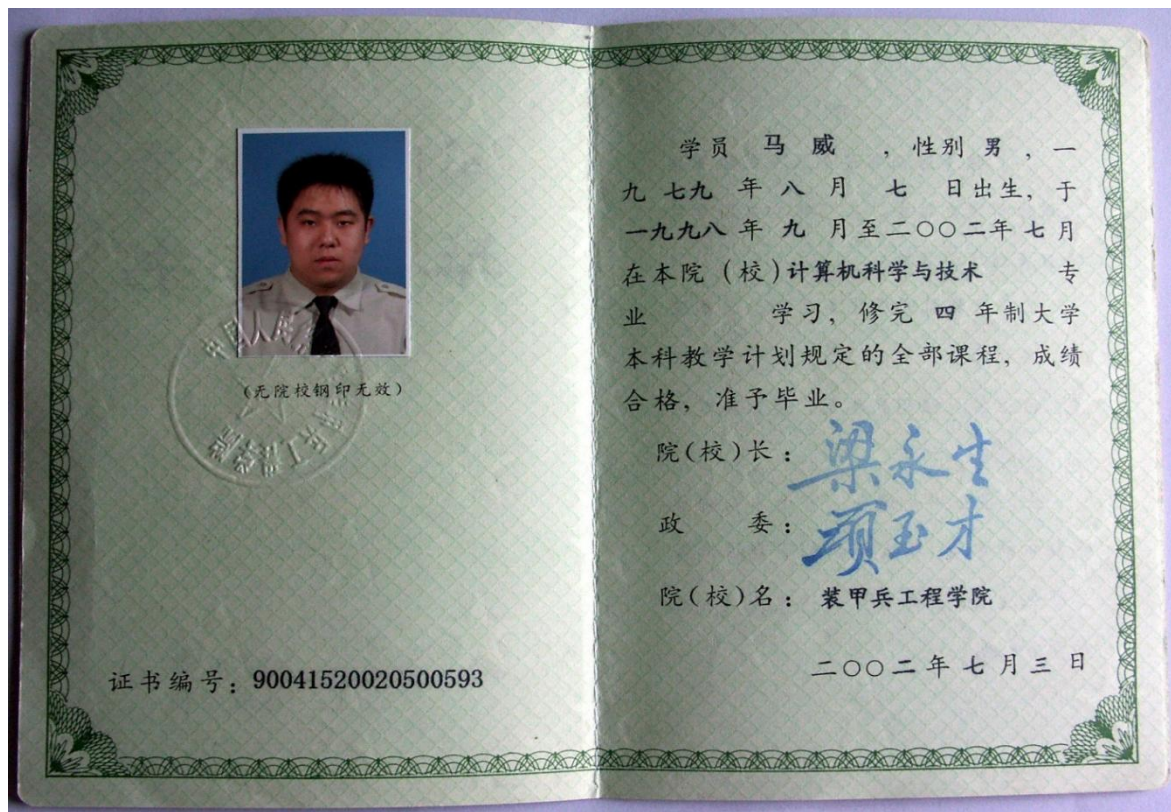 (无院校钢印无效)
证书编号：90041520020500593
学员 马威 ，性别 男 ，一
九七九 年 八 月 七 日出生，于
一九九八 年 九 月至二〇〇二年 七 月
在本院（校）计算机科学与技术 专
业 学习，修完 四 年制大学
本科教学计划规定的全部课程，成绩
合格，准予毕业。
院(校)长：梁永生
政 委：项玉才
院(校)名：装甲兵工程学院
二〇〇二年 七 月 三 日